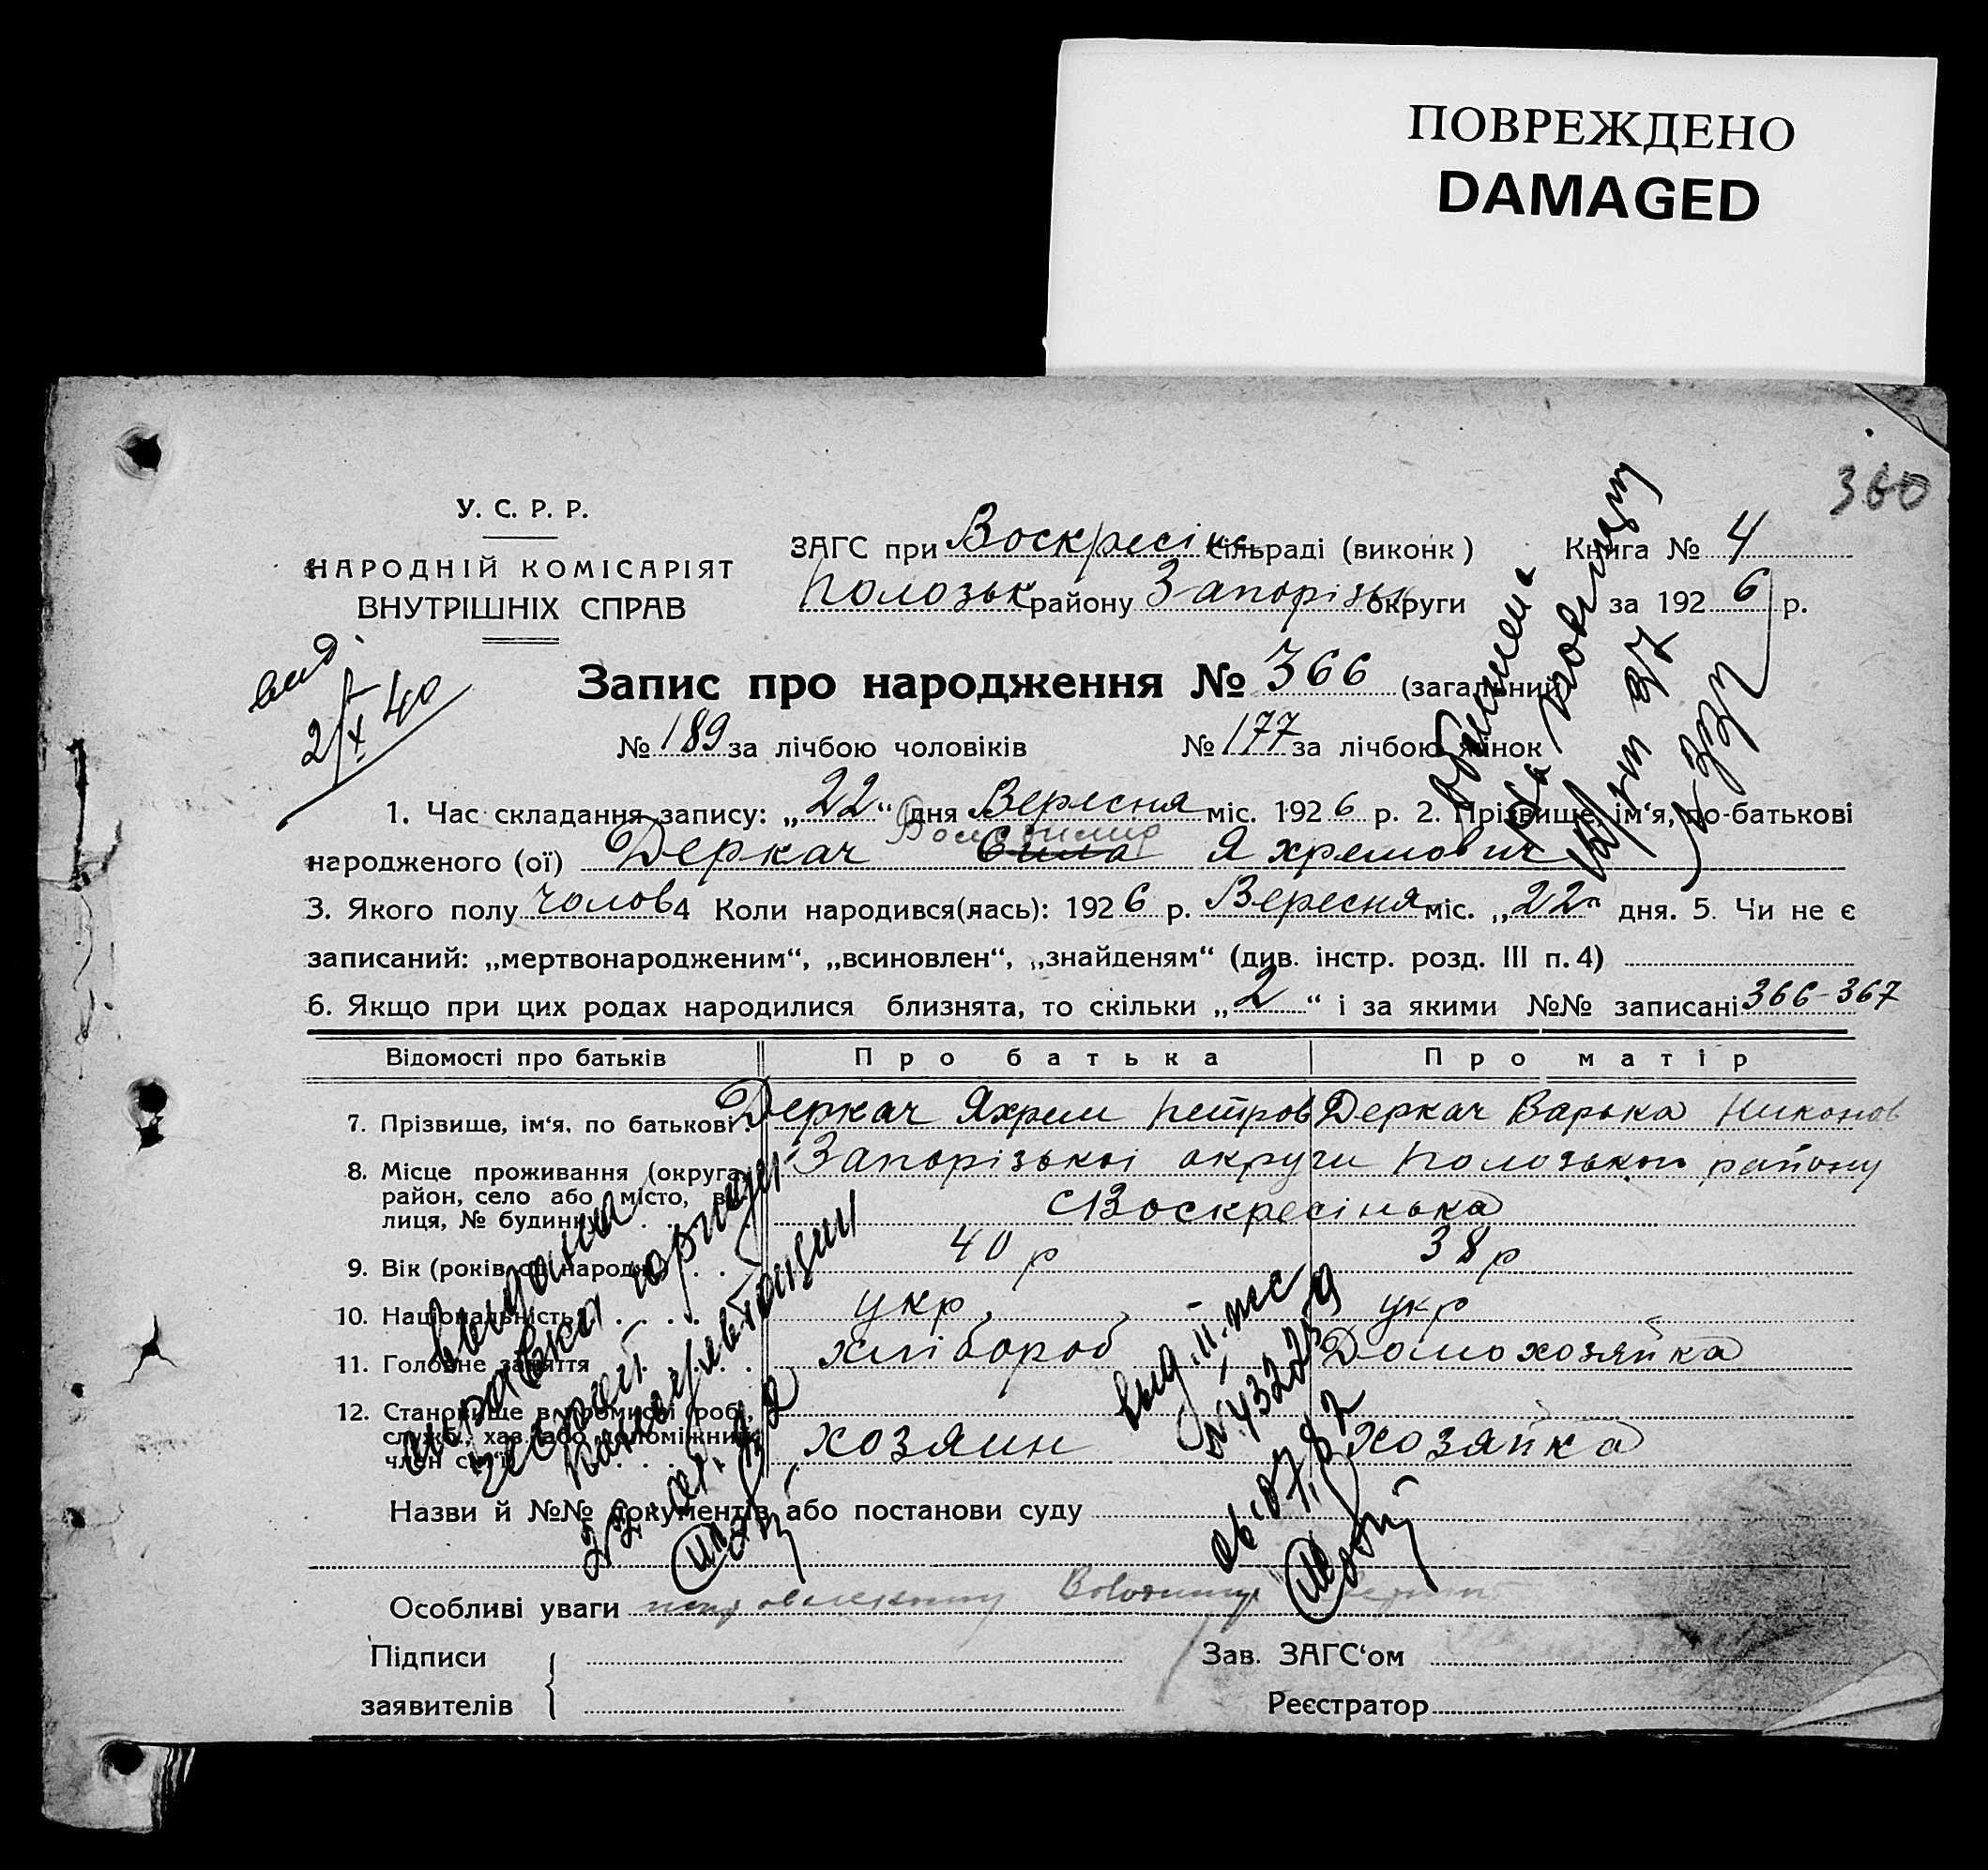 ПОВРЕЖДЕНО
DAMAGED
360
У. С. Р. Р.
НАРОДНІЙ КОМІСАРІЯТ
ВНУТРІШНІХ СПРАВ
ЗАГС при Воскресінс сільраді (виконк) Книга № 4
Полозьк району Запорізьк округи за 192 6 р.
вид
2/X 40
Запис про народження № 366 (загальний)
№ 189 за лічбою чоловіків № 177 за лічбою жінок
1. Час складання запису: „22“ дня Вересня міс. 192 6 р. 2. Прізвище, ім‘я, по-батькові
народженого (ої) Деркач Сила Яхремович
3. Якого полу чолов 4 Коли народився(лась): 192 6 р. Вересня міс. „22“ дня. 5. Чи не є
записаний: „мертвонародженим“, „всиновлен“, „знайденям“ (див. інстр. розд. III п. 4)
6. Якщо при цих родах народилися близнята, то скільки „2“ і за якими №№ записані 366-367
Відомості про батьків Про батька Про матір
7. Прізвище, ім‘я, по батькові Деркач Яхрем Петров Деркач Варька Никонов
8. Місце проживання (округа, район, село або місто, вулиця, № будинку) Запорізькоі округи Полозького району
с Воскресінька
9. Вік (років од народж.) 40 р 38 р
10. Національність укр. укр
11. Головне заняття хлібороб Домохозяйка
12. Становище в промислі (роб., служб., хаз. або допоміжний член сім‘ї) хозяин хозяйка
выдана
справка
выд. п.
06.07.82
Назви й №№ документів або постанови суду
Особливі уваги
Підписи
заявителів
Зав. ЗАГС‘ом
Реєстратор